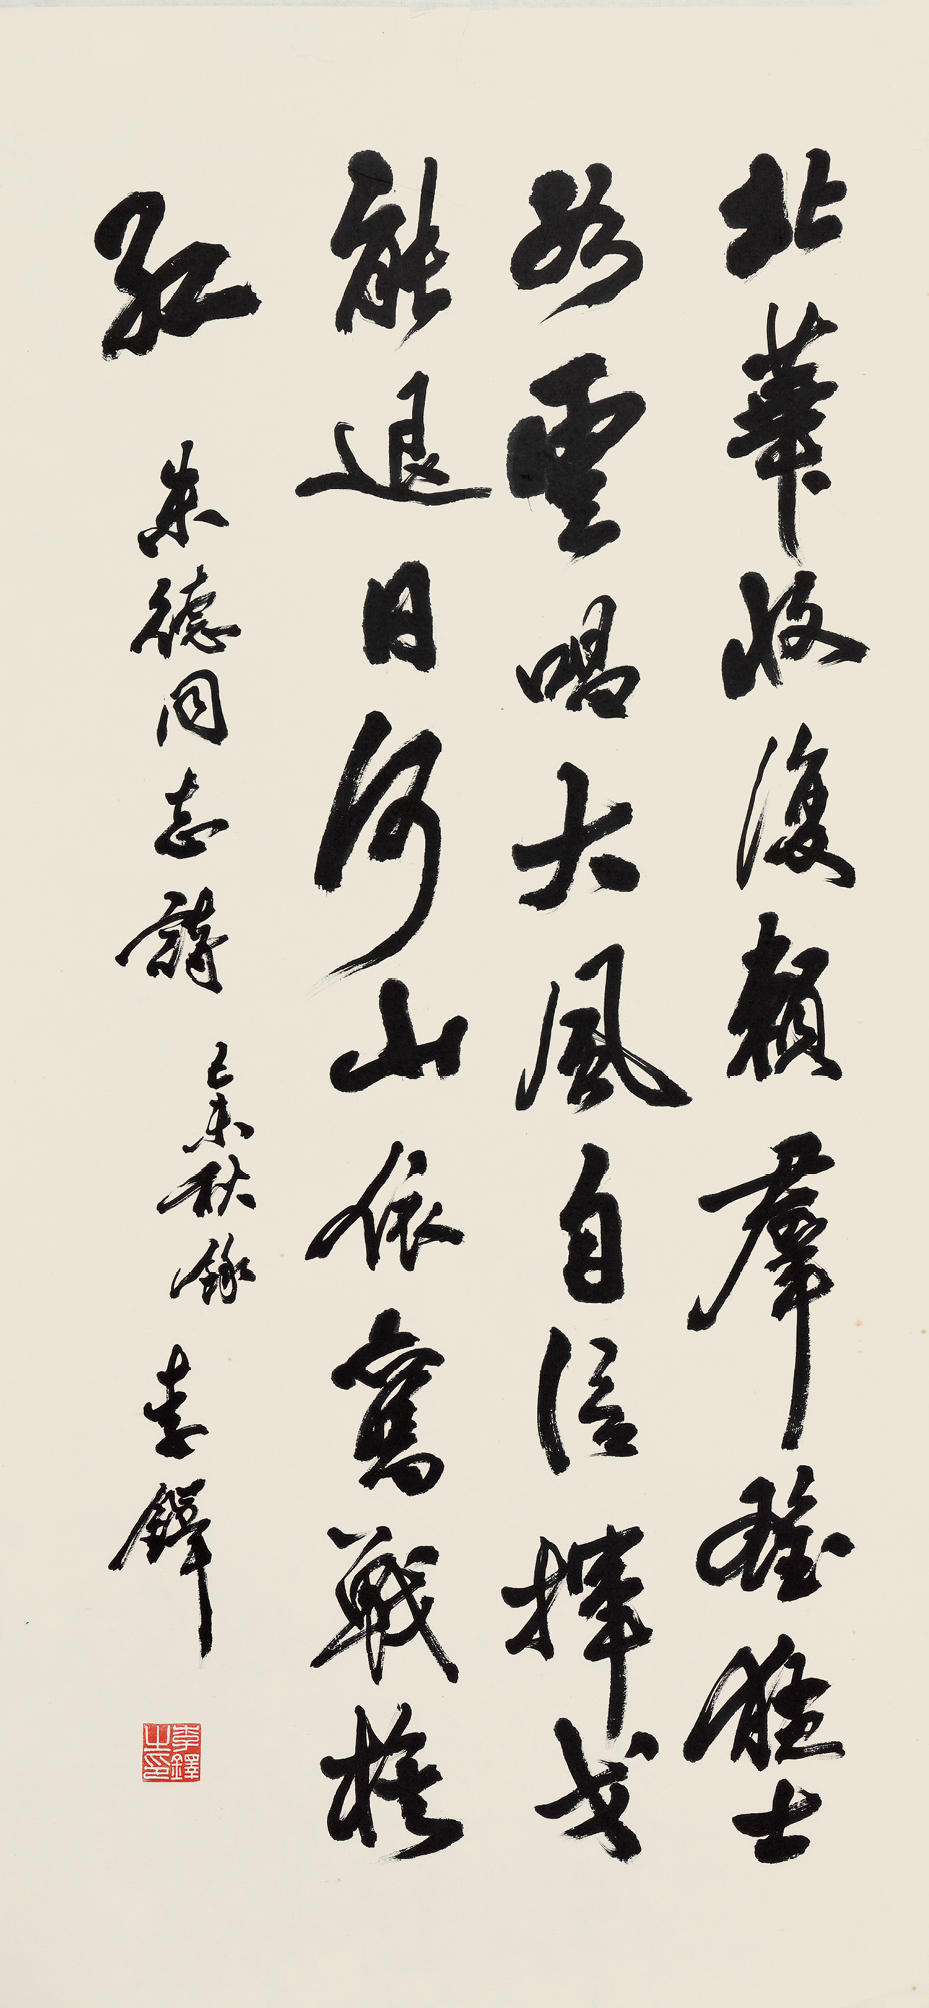 北華收復賴羣雄猛士
如雲唱大風自信揮戈
能退日河山依舊戰旗
紅 朱德同志詩 己未秋錄 李鐸
李鐸之印